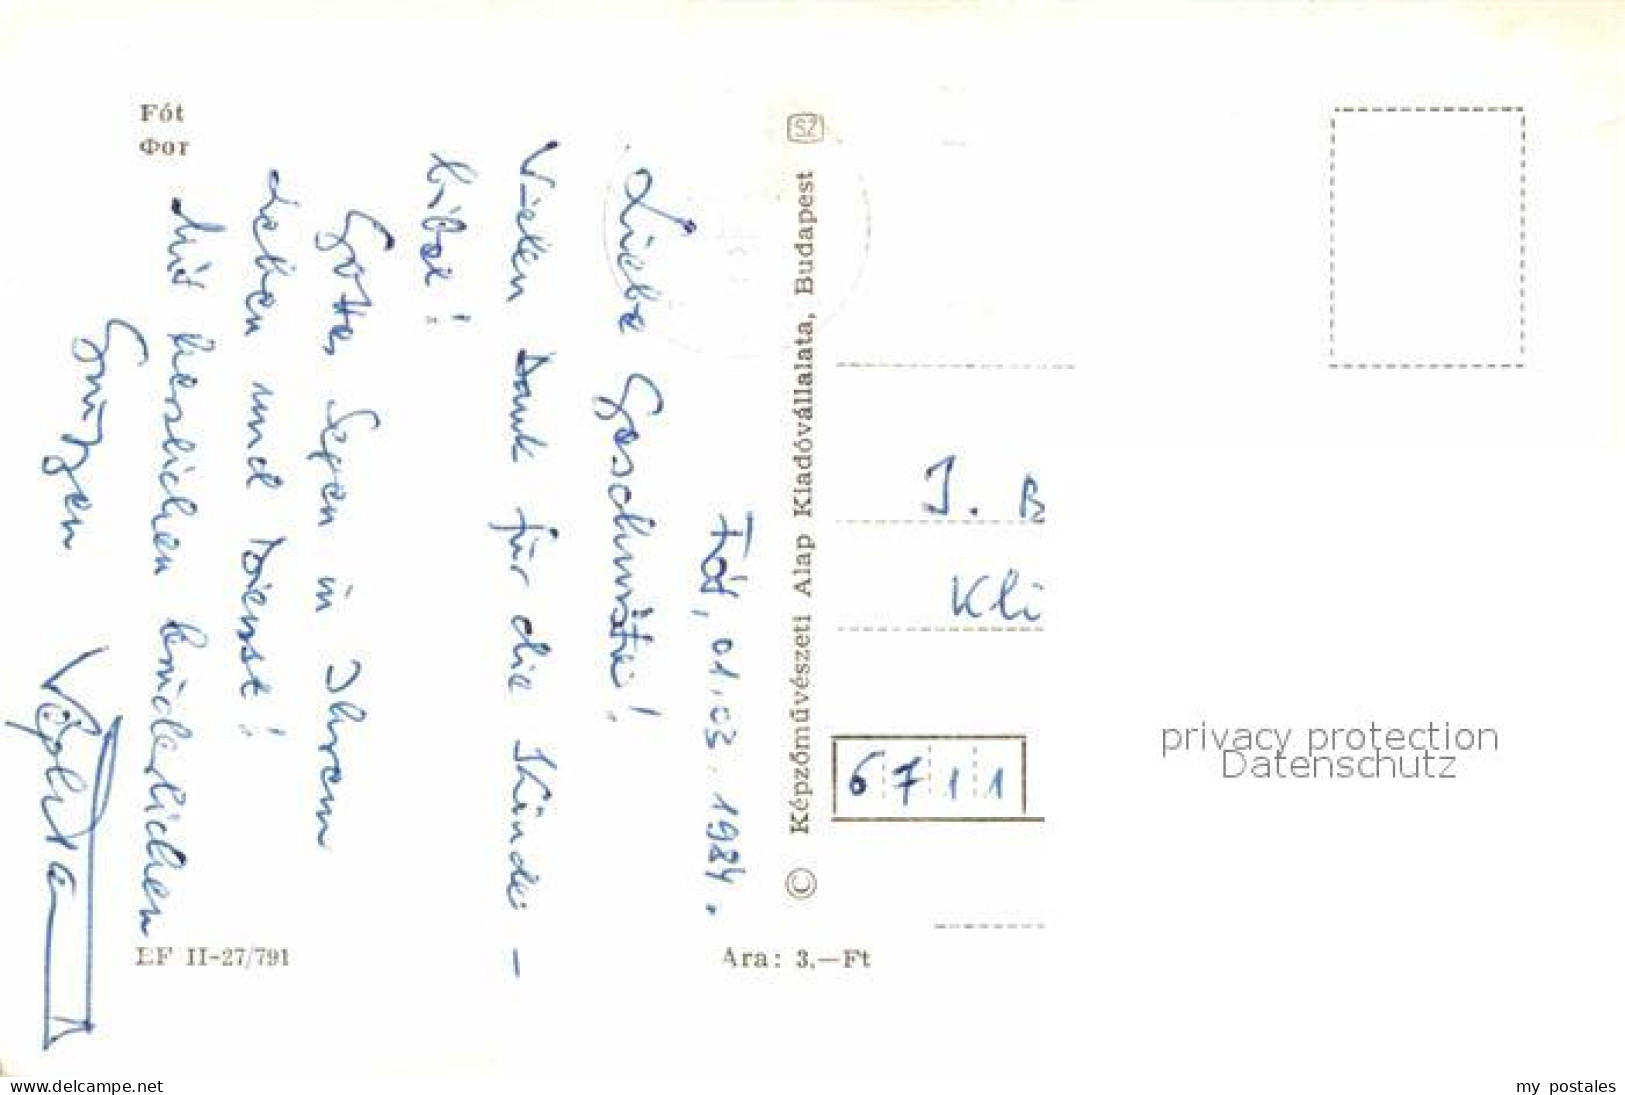 Fót
Фот
Fót, 01.03.1984.
Liebe Geschwister!
Vielen Dank für die Kinder-
bibel!
Gottes Segen in Ihrem
Leben und Dienst!
Mit herzlichen brüderlichen
Grüßen
BF II-27/791
Ára: 3,—Ft
© Képzőművészeti Alap Kiadóvállalata, Budapest
SZ
J. B
Kli
6711
privacy protection
Datenschutz
www.delcampe.net
my postales